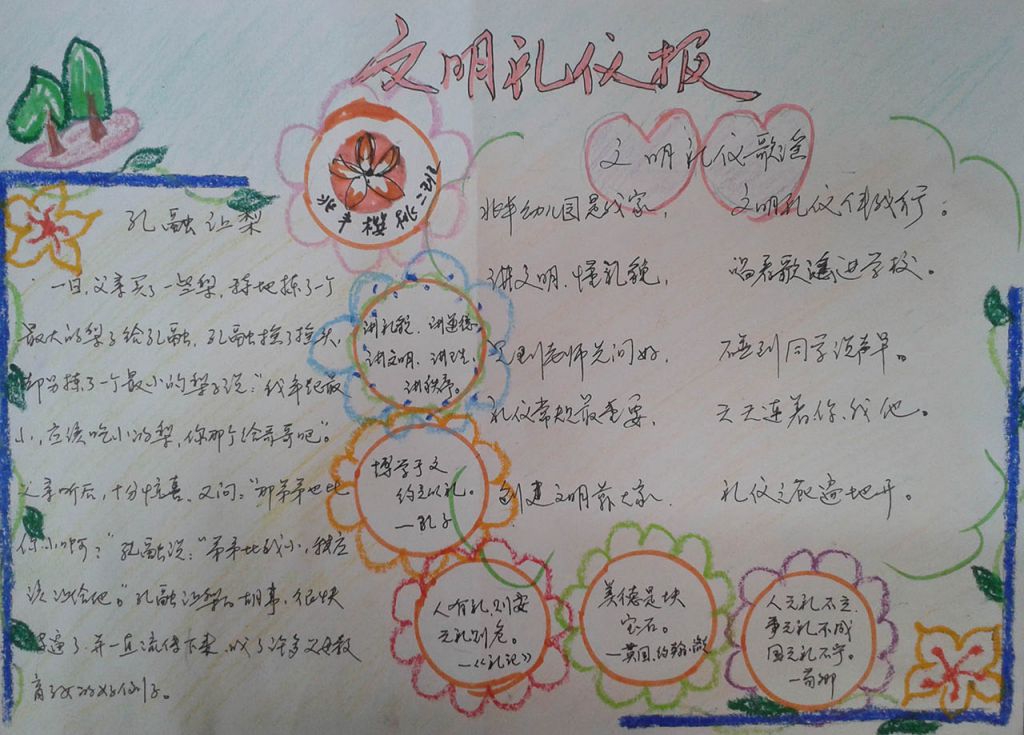 文明礼仪报
孔融让梨
一日,父亲买了一些梨,特地拣了一个
最大的梨子给孔融,孔融摇了摇头,
却另拣了一个最小的梨子说:“我年纪最
小,应该吃小的梨,你那个给哥哥吧”。
父亲听后,十分惊喜,又问:“那弟弟也比
你小啊?”孔融说:“弟弟比我小,我应
该让给他”。孔融让梨的故事,很快
了,并一直流传下来,成了许多父母教
育子女的好例子。
讲礼貌、讲道德、
讲文明、讲卫生、
讲秩序。
博学于文
约之以礼。
—孔子
人有礼则安
无礼则危。
—《礼记》
美德是块
宝石。
—英国,约翰
人无礼不立,
事无礼不成
国无礼不宁。
—荀卿
文明礼仪歌谣
幼儿园是我家, 文明礼仪伴我行。
讲文明,懂礼貌, 唱着歌谣进学校。
见到老师先问好, 碰到同学说声早。
礼仪常规最重要, 天天连着你我他。
创建文明靠大家, 礼仪之花遍地开。